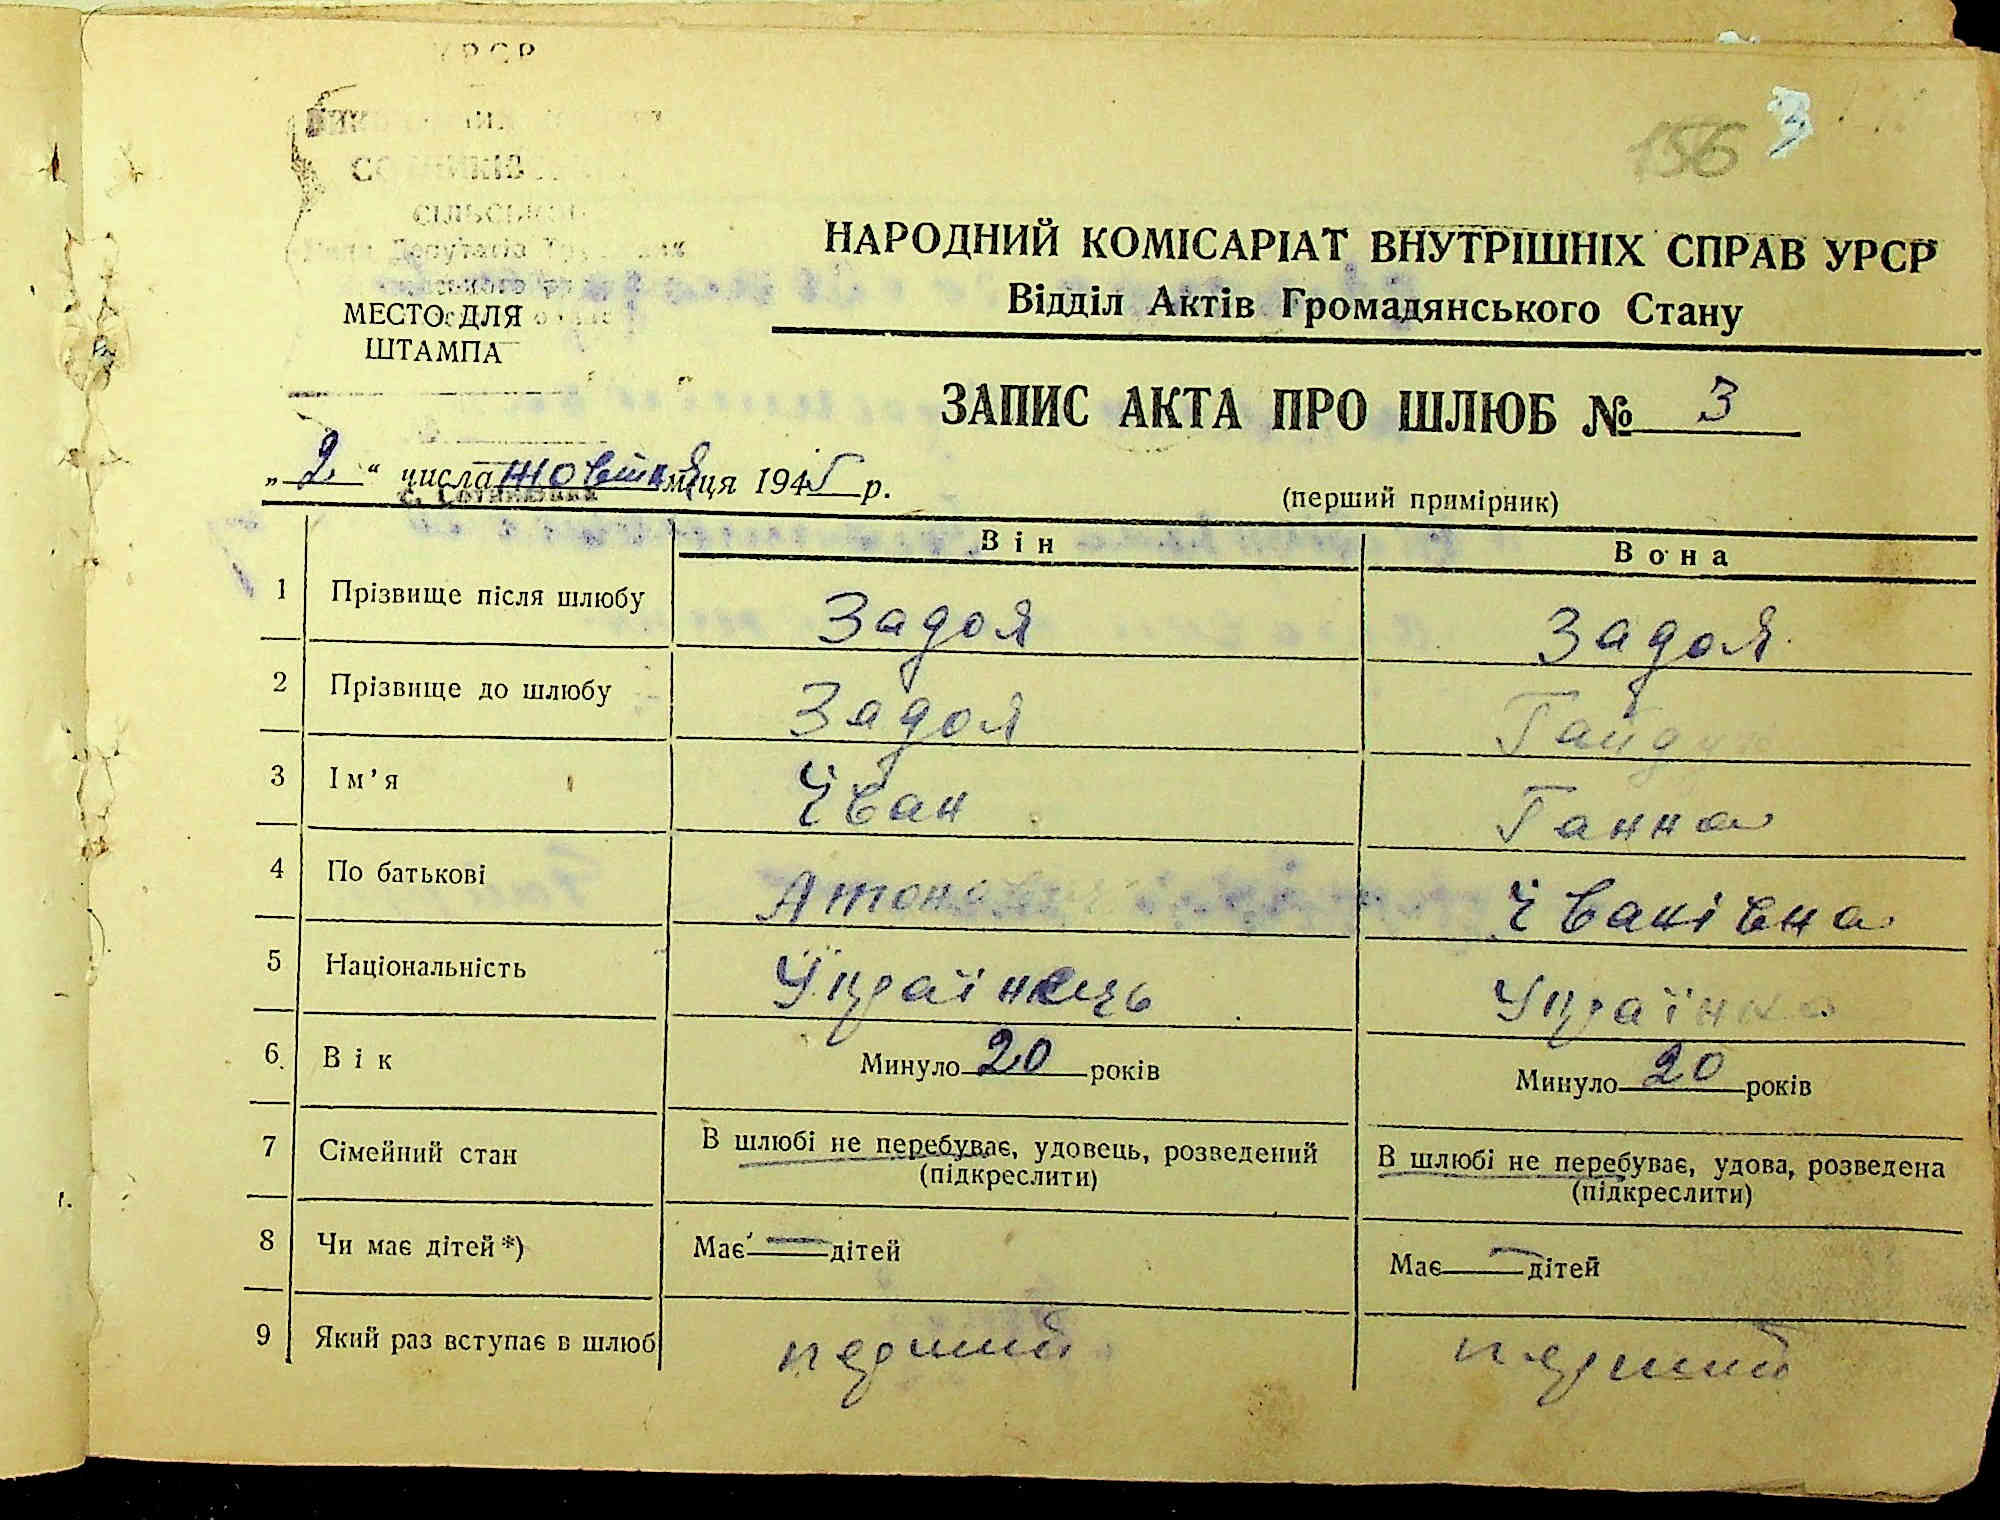 УРСР
СІЛЬСЬКОЇ
Депутатів
МЕСТО ДЛЯ
ШТАМПА
156
3
НАРОДНИЙ КОМІСАРІАТ ВНУТРІШНІХ СПРАВ УРСР
Відділ Актів Громадянського Стану
ЗАПИС АКТА ПРО ШЛЮБ № 3
„2“ числа жовтня м-ця 1945 р.
(перший примірник)
Він Вона
1 Прізвище після шлюбу Задоя Задоя
2 Прізвище до шлюбу Задоя
3 Ім’я Іван Ганна
4 По батькові Іванівна
5 Національність Українець Українка
6. Вік Минуло 20 років Минуло 20 років
7 Сімейний стан В шлюбі не перебуває, удовець, розведений (підкреслити) В шлюбі не перебуває, удова, розведена (підкреслити)
8 Чи має дітей*) Має — дітей Має — дітей
9 Який раз вступає в шлюб перший перший